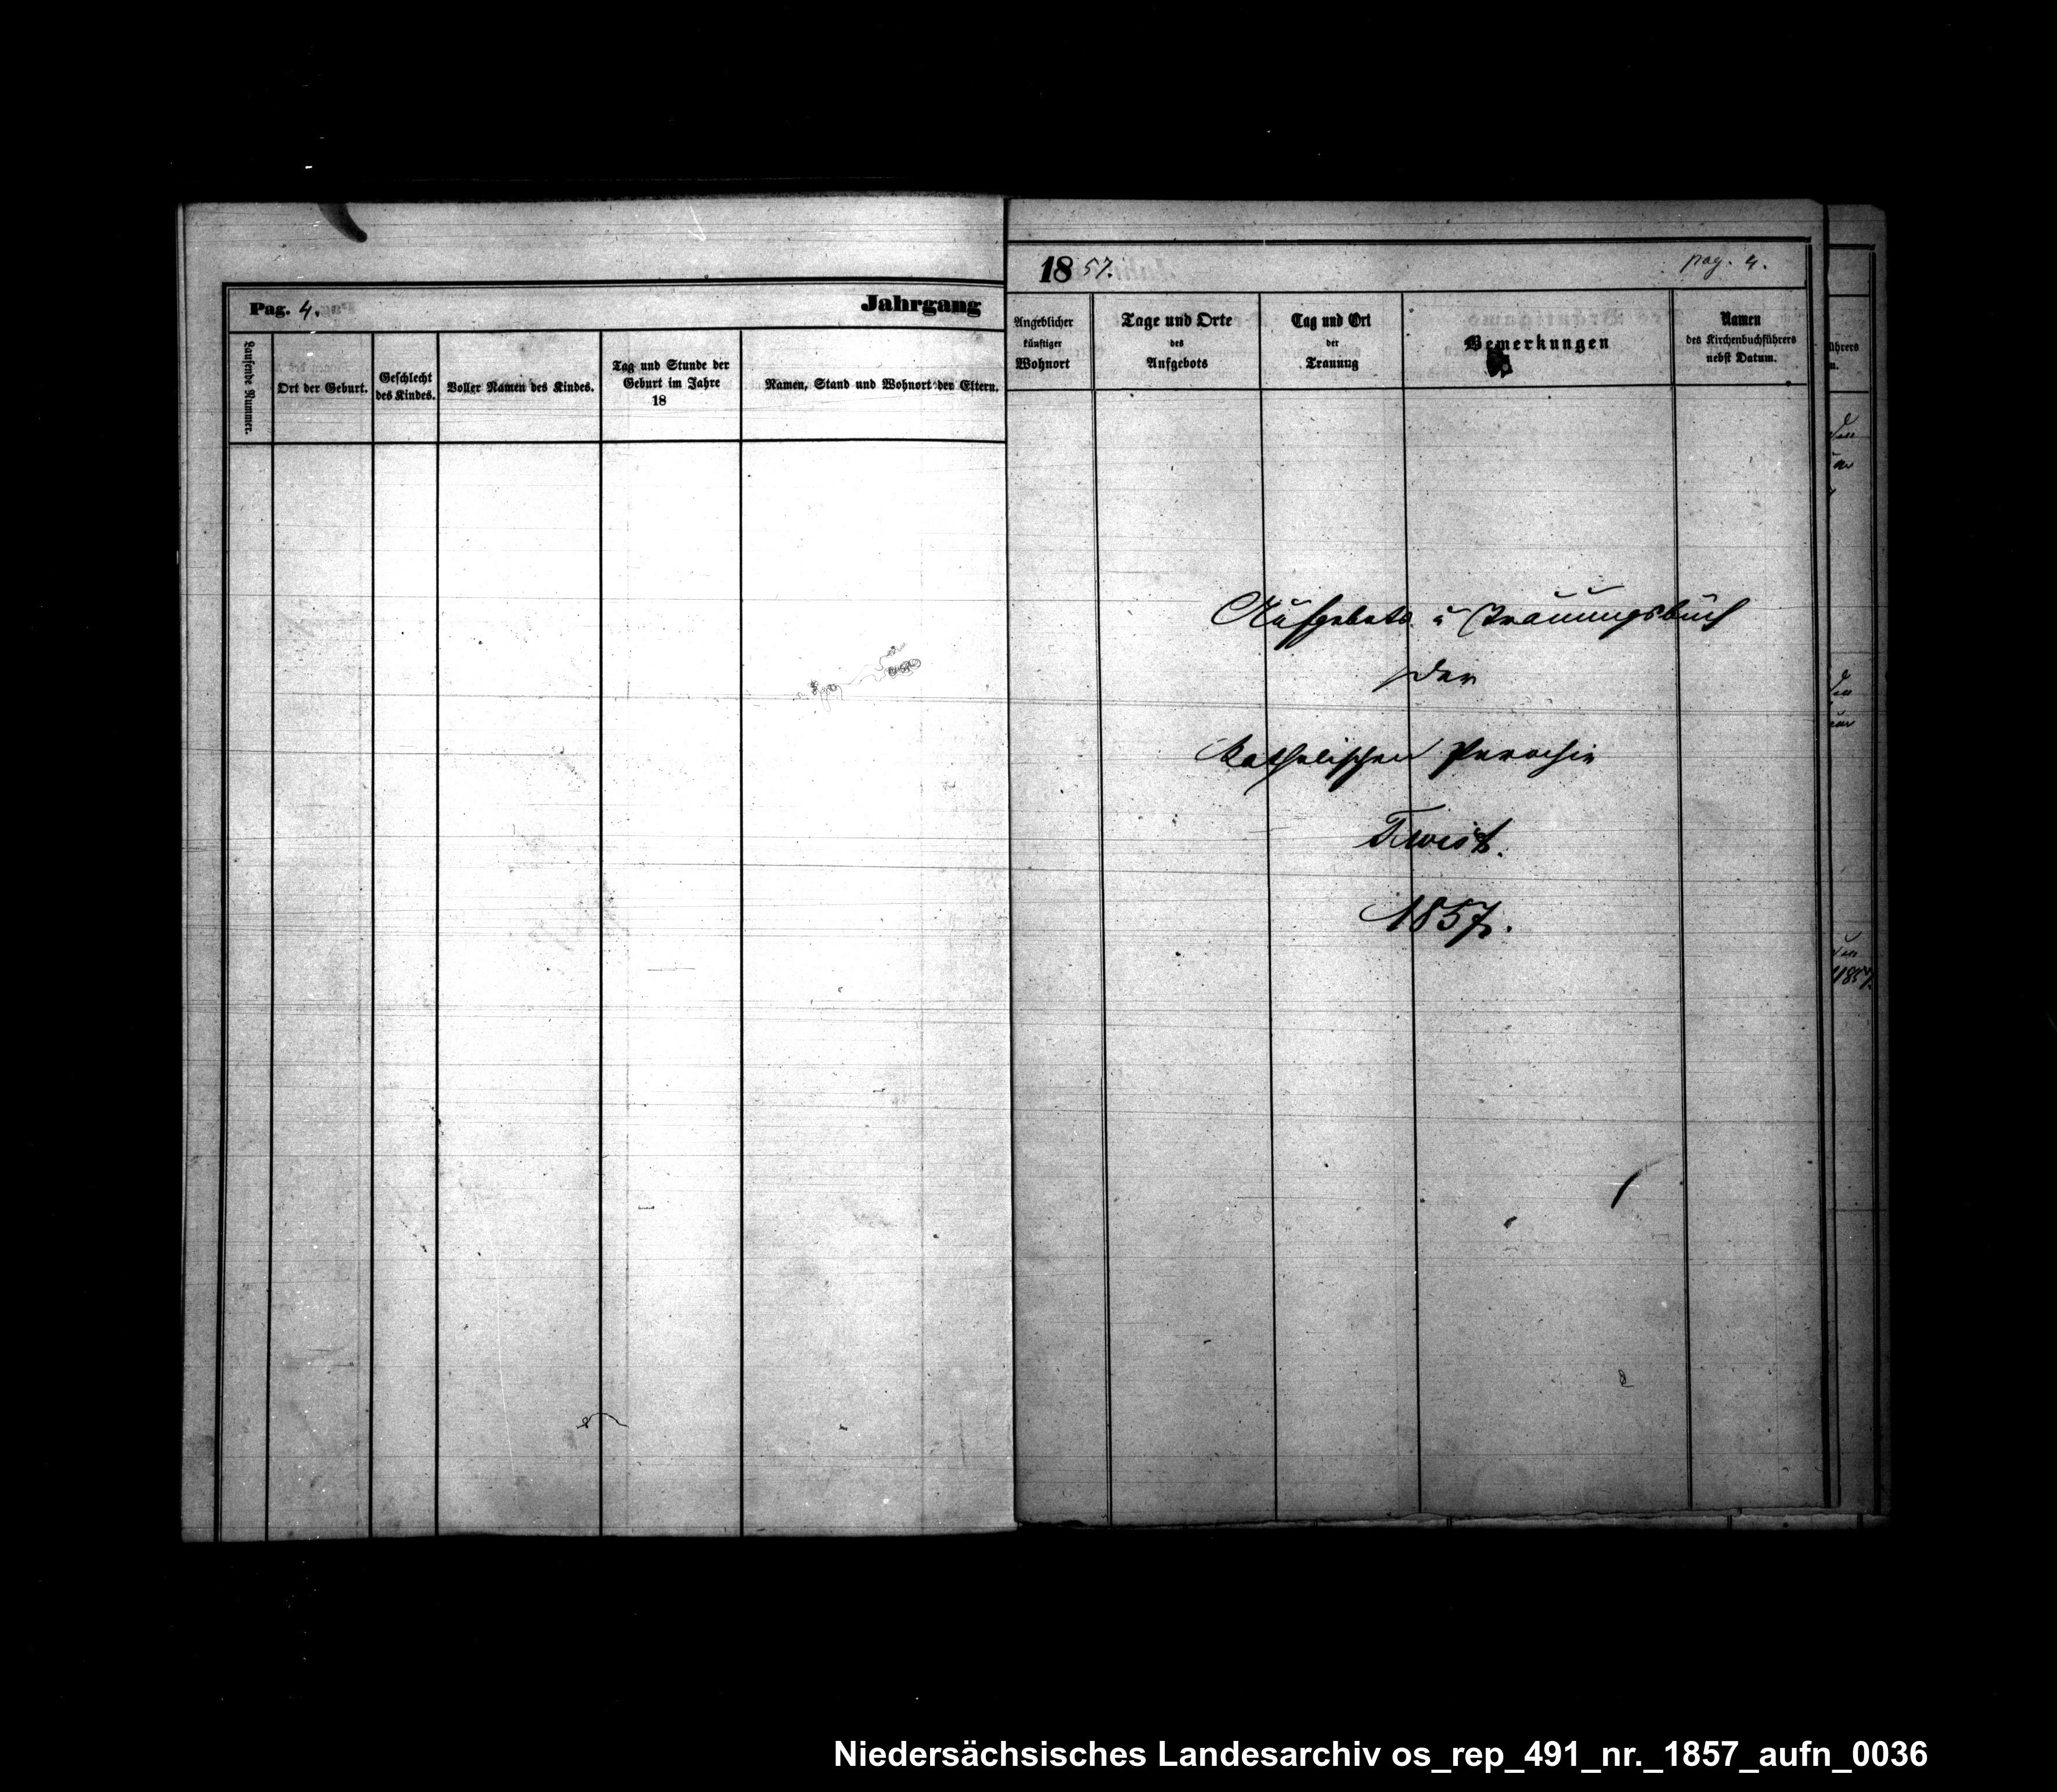 Pag. 4.
Jahrgang
Laufende Nummer.
Ort der Geburt.
Geschlecht
des Kindes.
Voller Namen des Kindes.
Tag und Stunde der
Geburt im Jahre
18
Namen, Stand und Wohnort der Eltern.
1857.
pag. 4.
Angeblicher
künftiger
Wohnort
Tage und Orte
des
Aufgebots
Tag und Ort
der
Trauung
Bemerkungen
Namen
des Kirchenbuchführers
nebst Datum.
Aufgebots u Trauungsbuch
der
Katholischen Parochie
Twist.
1857.
1857.
Niedersächsisches Landesarchiv os_rep_491_nr._1857_aufn_0036